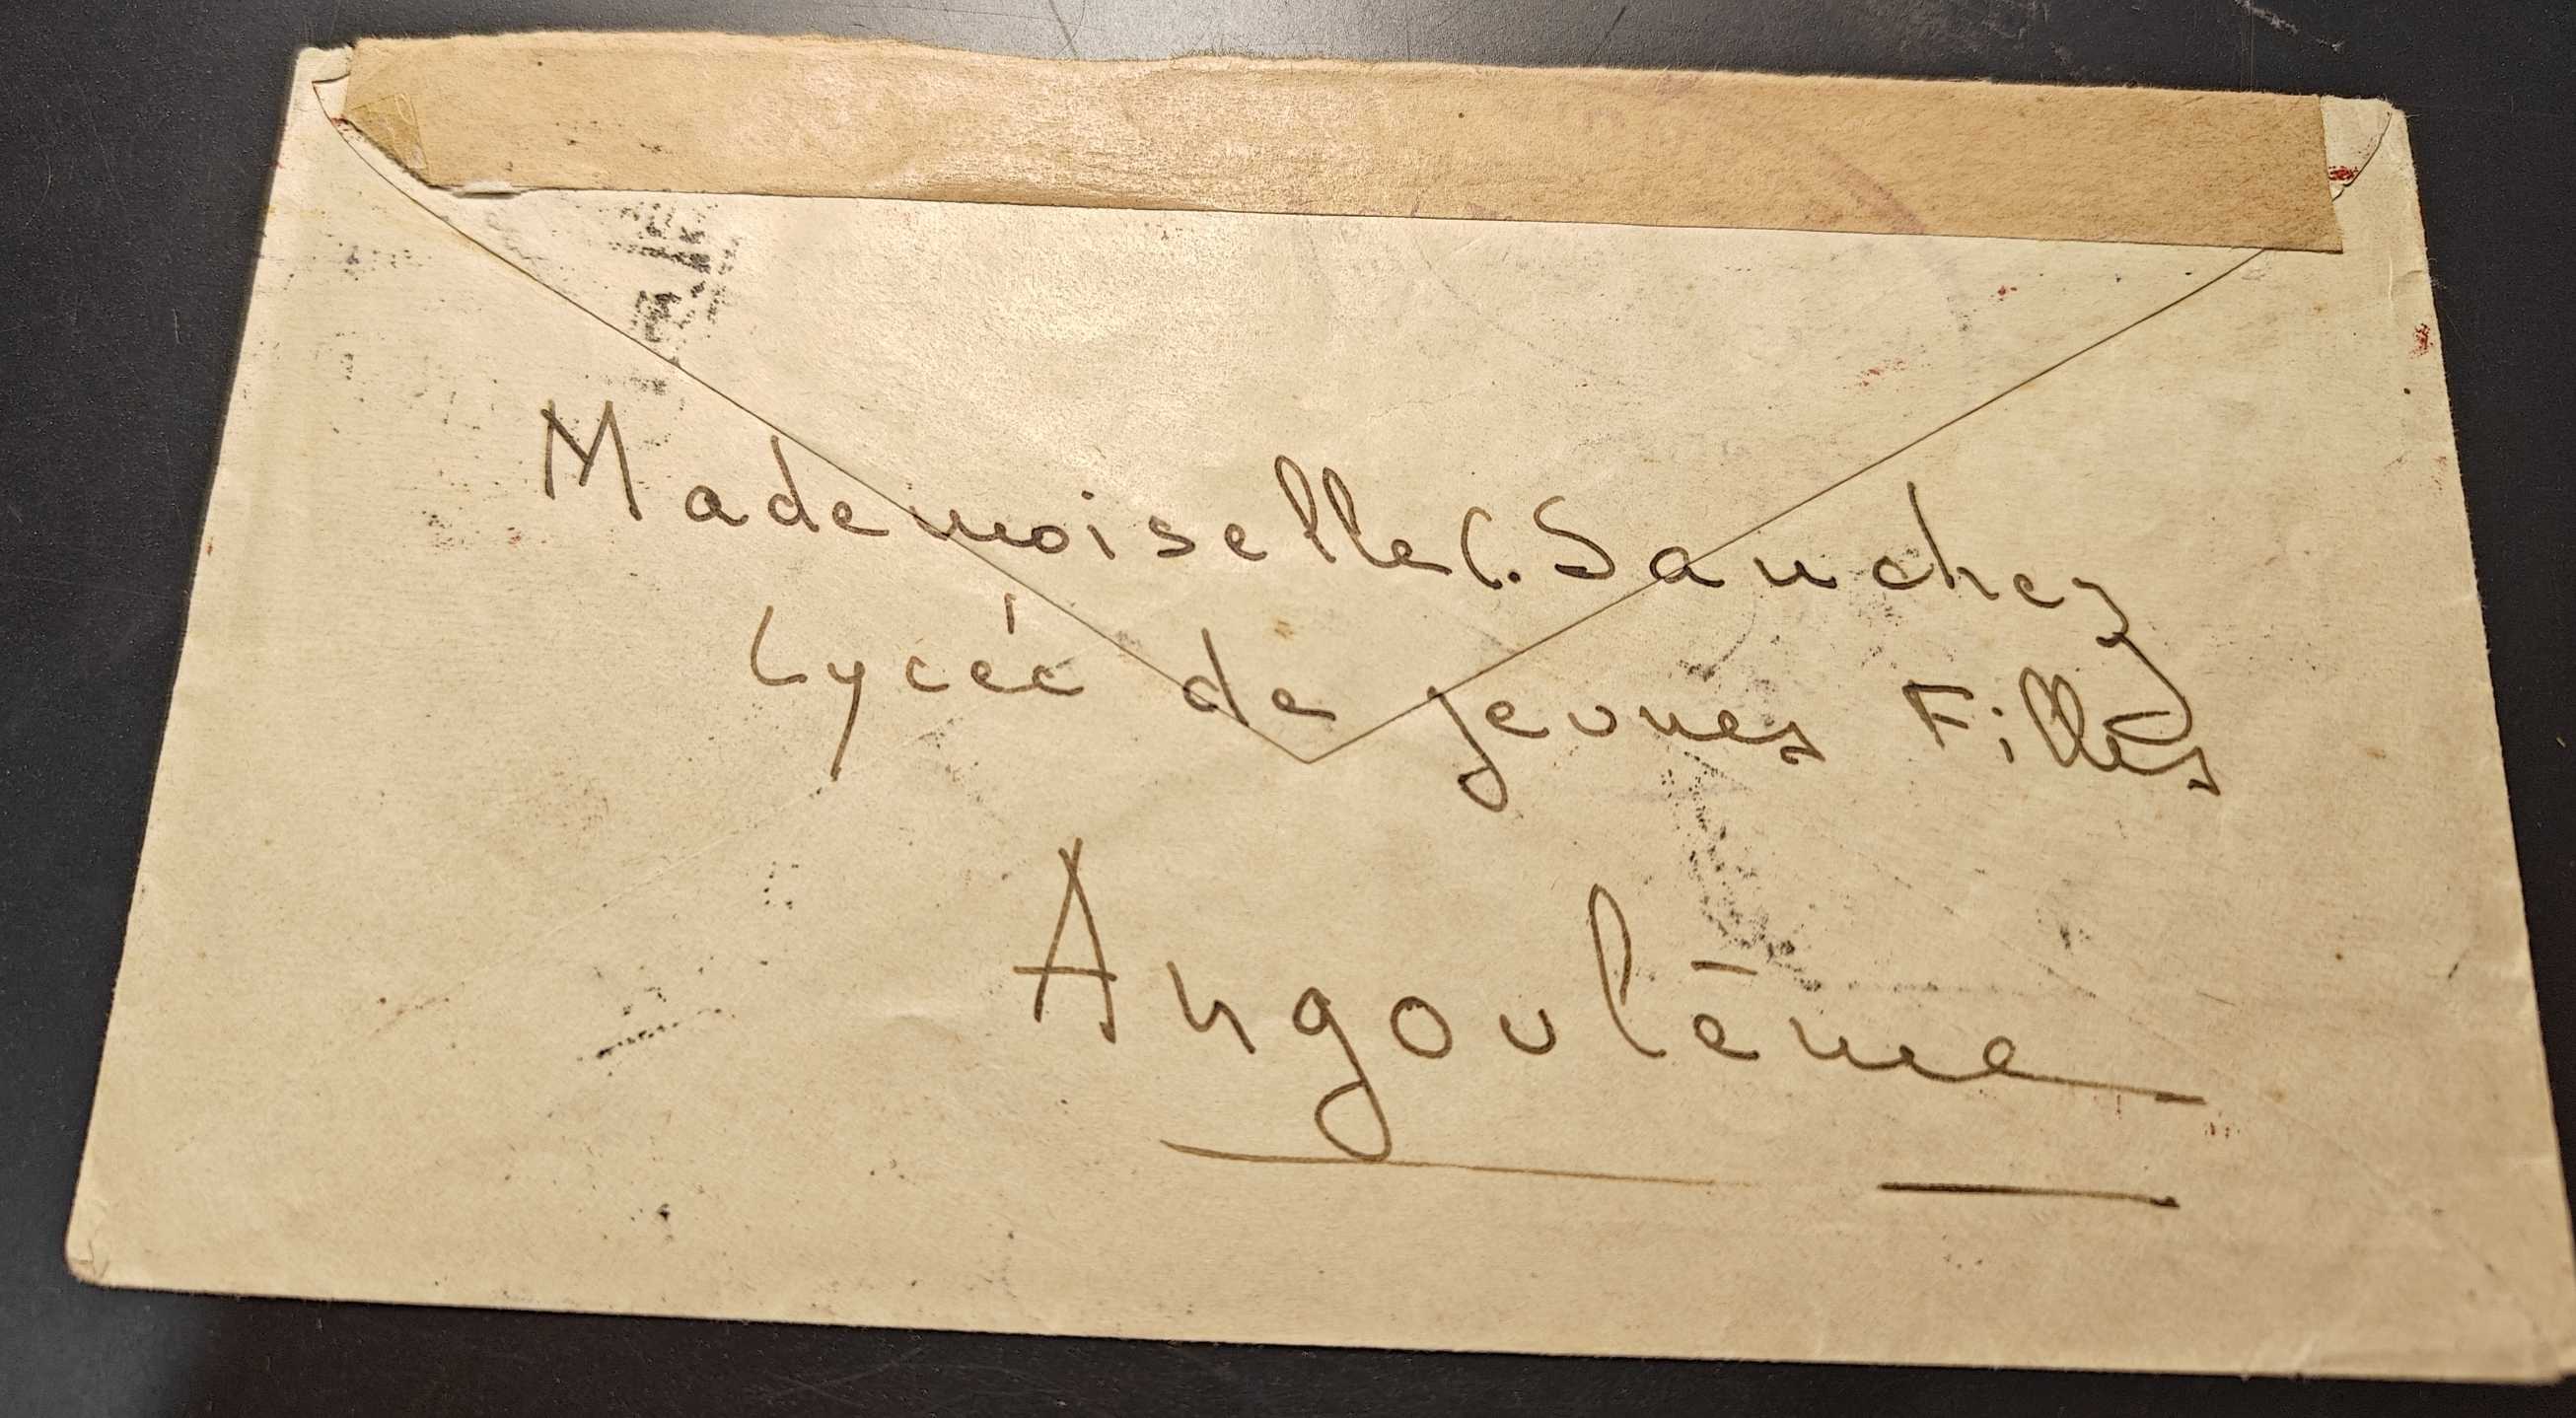 Mademoiselle C. Sanchez
Lycée de jeunes Filles
Angoulême